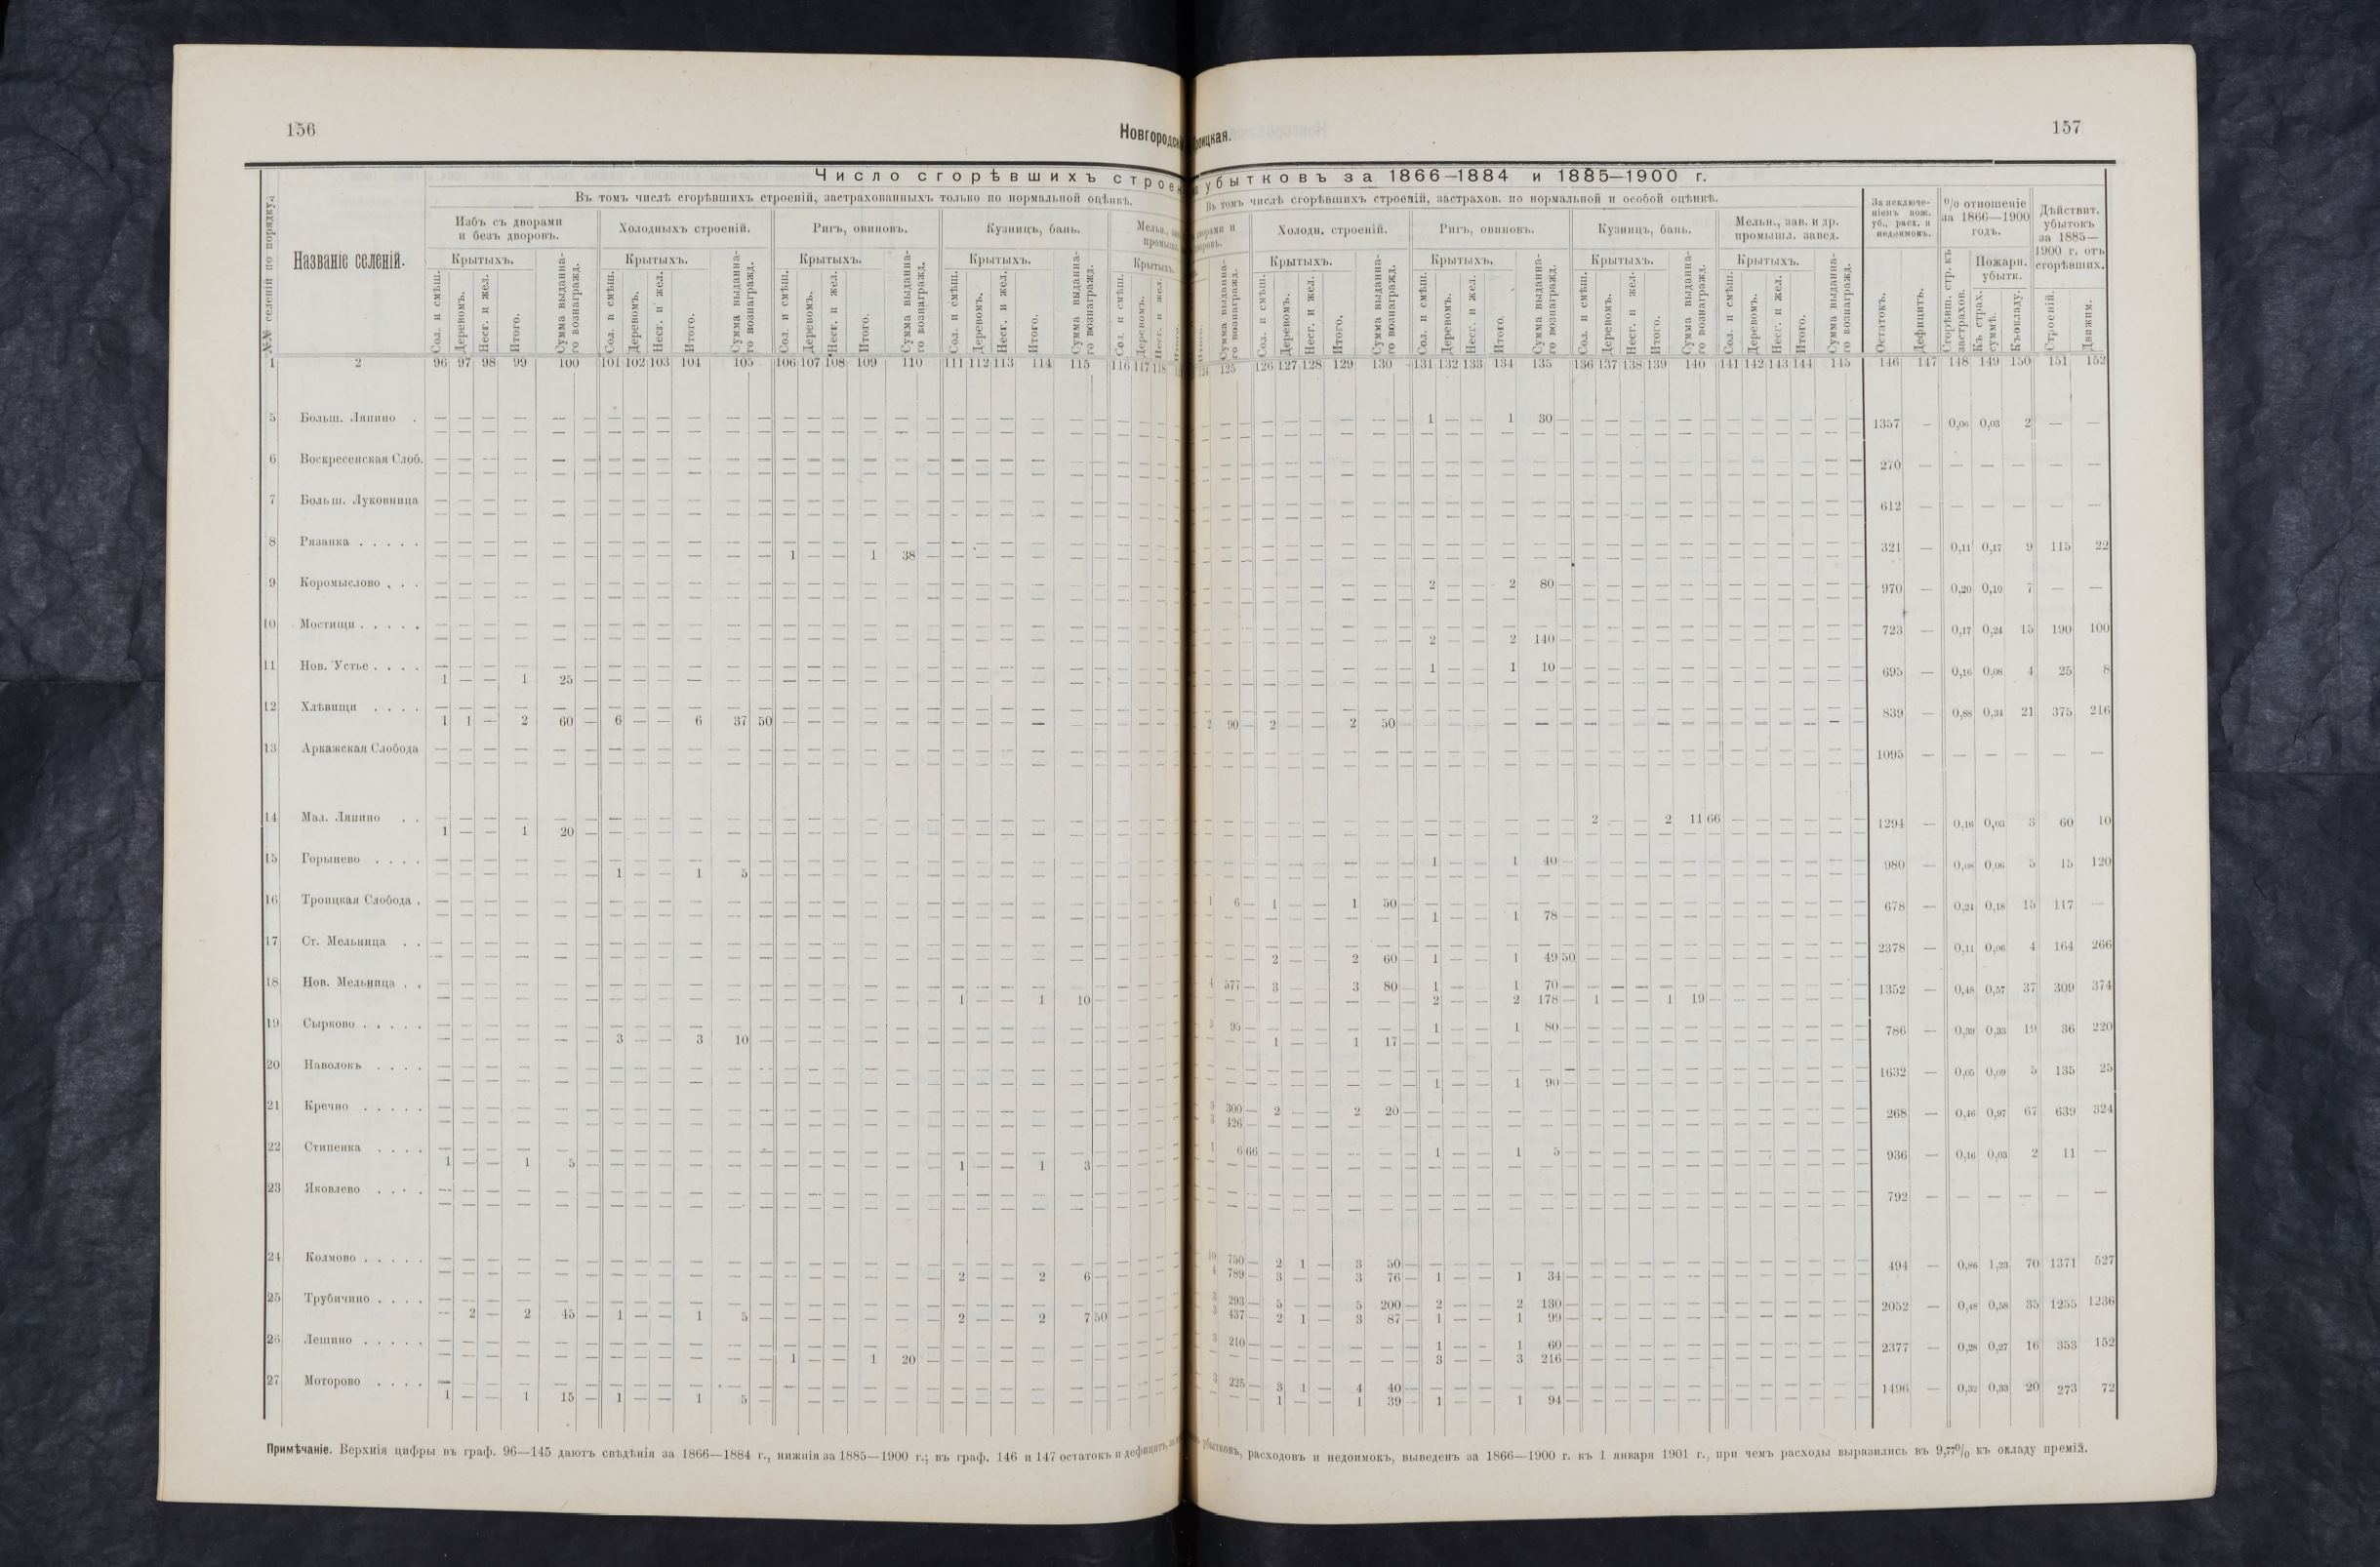 156
Новгородск
Число сгорѣвшихъ строен
Въ томъ числѣ сгорѣвшихъ строеній, застрахованныхъ только по нормальной оцѣнкѣ.
№№ селеній по порядку.
Названіе селеній.
Избъ съ дворами и безъ дворовъ.
Холодныхъ строеній.
Ригъ, овиновъ.
Кузницъ, бань.
Крытыхъ. Крытыхъ. Крытыхъ. Крытыхъ. Крытыхъ.
Сол. и смѣш. Деревомъ. Несг. и жел. Итого. Сумма выданна-го вознагражд.
Сол. и смѣш. Деревомъ. Несг. и жел. Итого. Сумма выданна-го вознагражд.
Сол. и смѣш. Деревомъ. Несг. и жел. Итого. Сумма выданна-го вознагражд.
Сол. и смѣш. Деревомъ. Несг. и жел. Итого. Сумма выданна-го вознагражд.
Сол. и смѣш. Деревомъ. Несг. и жел.
1 2 96 97 98 99 100 101 102 103 104 105 106 107 108 109 110 111 112 113 114 115 116 117 118
5 Больш. Ляпино .
6 Воскресенская Слоб.
7 Больш. Луковница
8 Рязанка . . . . .
1 — — 1 38 —
9 Коромыслово . . .
10 Мостищи . . . . .
11 Нов. Устье . . . .
1 — — 1 25 —
12 Хлѣвищи . . . .
1 1 — 2 60 — 6 — — 6 37 50
13 Аркажская Слобода
14 Мал. Ляпино . .
1 — — 1 20 —
15 Горынево . . . .
1 — — 1 5 —
16 Троицкая Слобода .
17 Ст. Мельница . .
18 Нов. Мельница . .
1 — — 1 10 —
19 Сырково . . . . .
3 — — 3 10 —
20 Наволокъ . . . .
21 Кречно . . . . .
22 Стипенка . . . .
1 — — 1 5 — 1 — — 1 3 —
23 Яковлево . . . .
24 Колмово . . . . .
2 — — 2 6 —
25 Трубичино . . . .
— 2 — 2 45 — 1 — — 1 5 — 2 — — 2 7 50
26 Лешино . . . . .
1 — — 1 20 —
27 Моторово . . . .
1 — — 1 15 — 1 — — 1 5 —
Примѣчаніе. Верхнія цифры въ граф. 96—145 даютъ свѣдѣнія за 1866—1884 г., нижнія за 1885—1900 г.; въ граф. 146 и 147 остатокъ и дефицитъ,
157
роицкая.
убытковъ за 1866—1884 и 1885—1900 г.
Въ томъ числѣ сгорѣвшихъ строеній, застрахов. по нормальной и особой оцѣнкѣ.
Холодн. строеній.
Ригъ, овиновъ.
Кузницъ, бань.
Мельн., зав. и др. промышл. завед.
За исключе-ніемъ пож. уб., расх. и недоимокъ.
% отношеніе за 1866—1900 годъ.
Дѣйствит. убытокъ за 1885—1900 г. отъ сгорѣвшихъ.
Крытыхъ. Крытыхъ. Крытыхъ. Крытыхъ.
Пожарн. убытк.
Сумма выданна-го вознагражд.
Сол. и смѣш. Деревомъ. Несг. и жел. Итого. Сумма выданна-го вознагражд.
Сол. и смѣш. Деревомъ. Несг. и жел. Итого. Сумма выданна-го вознагражд.
Сол. и смѣш. Деревомъ. Несг. и жел. Итого. Сумма выданна-го вознагражд.
Сол. и смѣш. Деревомъ. Несг. и жел. Итого. Сумма выданна-го вознагражд.
Остатокъ. Дефицитъ. Сгорѣвш. стр. къ застрахов. Къ страх. суммѣ. Къ окладу. Строеній. Движим.
124 125 126 127 128 129 130 131 132 133 134 135 136 137 138 139 140 141 142 143 144 145 146 147 148 149 150 151 152
1 — — 1 30 — 1357 — 0,06 0,03 2 — —
270 — — — — — —
612 — — — — — —
321 — 0,11 0,17 9 115 22
2 — — 2 80 — 970 — 0,20 0,10 7 — —
2 — — 2 140 — 723 — 0,17 0,24 15 190 100
1 — — 1 10 — 695 — 0,16 0,08 4 25 8
2 90 — 2 — — 2 50 — 839 — 0,88 0,34 21 375 216
1095 — — — — — —
2 — — 2 11 66 1294 — 0,16 0,03 3 60 10
1 — — 1 40 — 980 — 0,08 0,06 5 15 120
1 6 — 1 — — 1 50 — 678 — 0,24 0,18 15 117 —
1 — — 1 78 —
2 — — 2 60 — 1 — — 1 49 50 2378 — 0,11 0,06 4 164 266
4 577 — 3 — — 3 80 — 1 — — 1 70 — 1352 — 0,48 0,57 37 309 374
2 — — 2 178 — 1 — — 1 19 —
3 95 — 1 — — 1 80 — 786 — 0,39 0,33 19 36 220
1 — — 1 17 —
1 — — 1 90 — 1632 — 0,05 0,09 5 135 25
3 300 — 2 — — 2 20 — 268 — 0,46 0,97 67 639 324
3 426 —
1 6 66 1 — — 1 5 — 936 — 0,16 0,03 2 11 —
792 — — — — — —
10 750 — 2 1 — 3 50 — 494 — 0,86 1,23 70 1371 527
4 789 — 3 — — 3 76 — 1 — — 1 34 —
3 293 — 5 — — 5 200 — 2 — — 2 130 — 2052 — 0,48 0,58 35 1255 1236
3 437 — 2 1 — 3 87 — 1 — — 1 99 —
3 210 — 1 — — 1 60 — 2377 — 0,28 0,27 16 353 152
3 — — 3 216 —
3 225 — 3 1 — 4 40 — 1496 — 0,32 0,33 20 273 72
1 — — 1 39 — 1 — — 1 94 —
убытковъ, расходовъ и недоимокъ, выведенъ за 1866—1900 г. къ 1 января 1901 г., при чемъ расходы выразились въ 9,77% къ окладу премій.